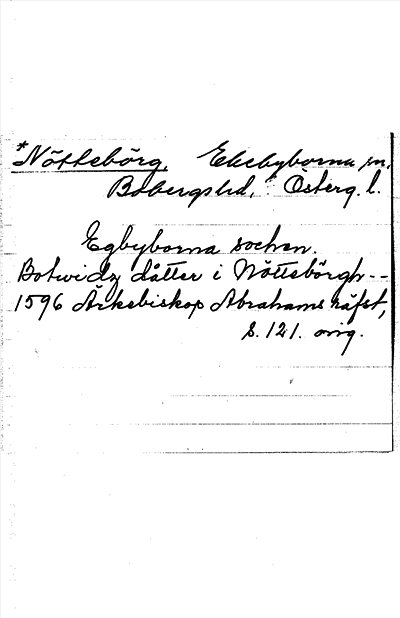 *Nöttebörg, Ekebyborna sn,
Bobergs hd, Österg. l.
Egbyborna sochen.
Botwidz dåtter i Nöttebörgh --
1596 Ärkebiskop Abrahams räfst,
s. 121. orig.